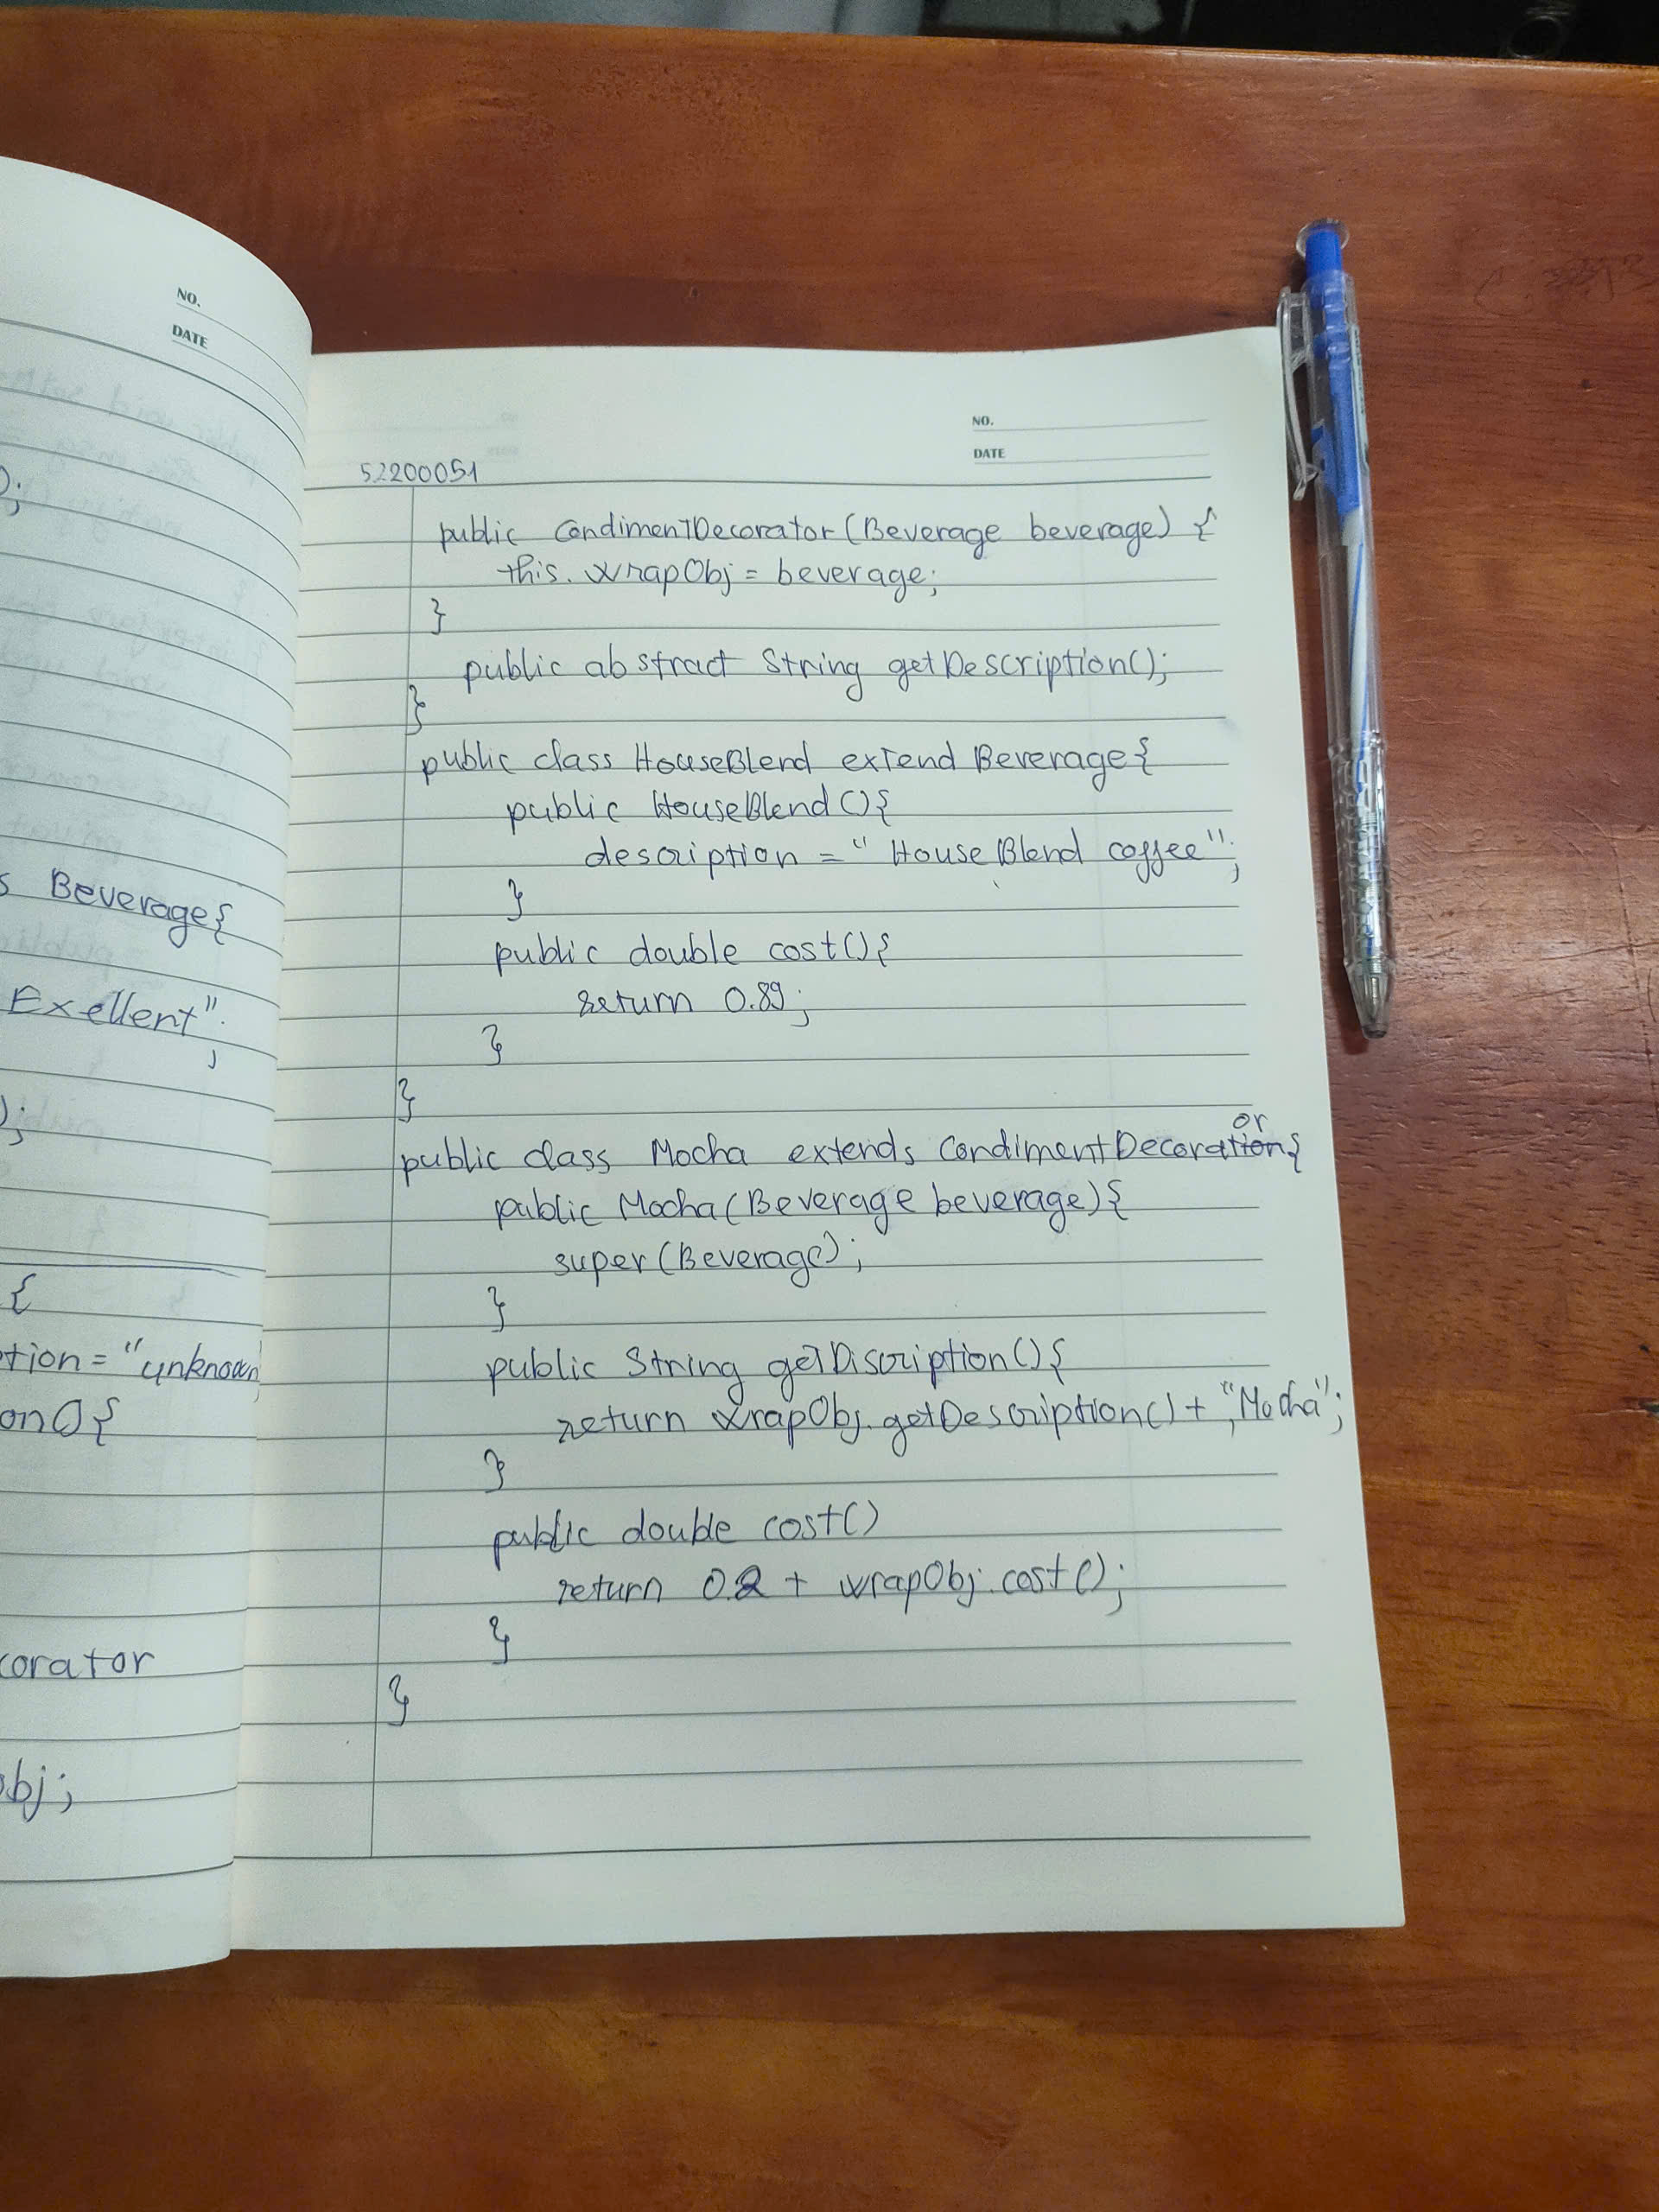 NO.
DATE
);
s Beverage{
Exellent";
);
{
tion = "unknown
on(){
corator
obj;
NO.
DATE
52200051
public CondimentDecorator(Beverage beverage) {
this.wrapObj = beverage;
}
public abstract String getDescription();
}
public class HouseBlend extend Beverage{
public HouseBlend(){
description = "House Blend coffee";
}
public double cost(){
return 0.89;
}
}
or
public class Mocha extends CondimentDecoration{
public Mocha(Beverage beverage){
super(Beverage);
}
public String getDiscription(){
return wrapObj.getDescription() + ",Mocha";
}
public double cost()
return 0.2 + wrapObj.cost();
}
}